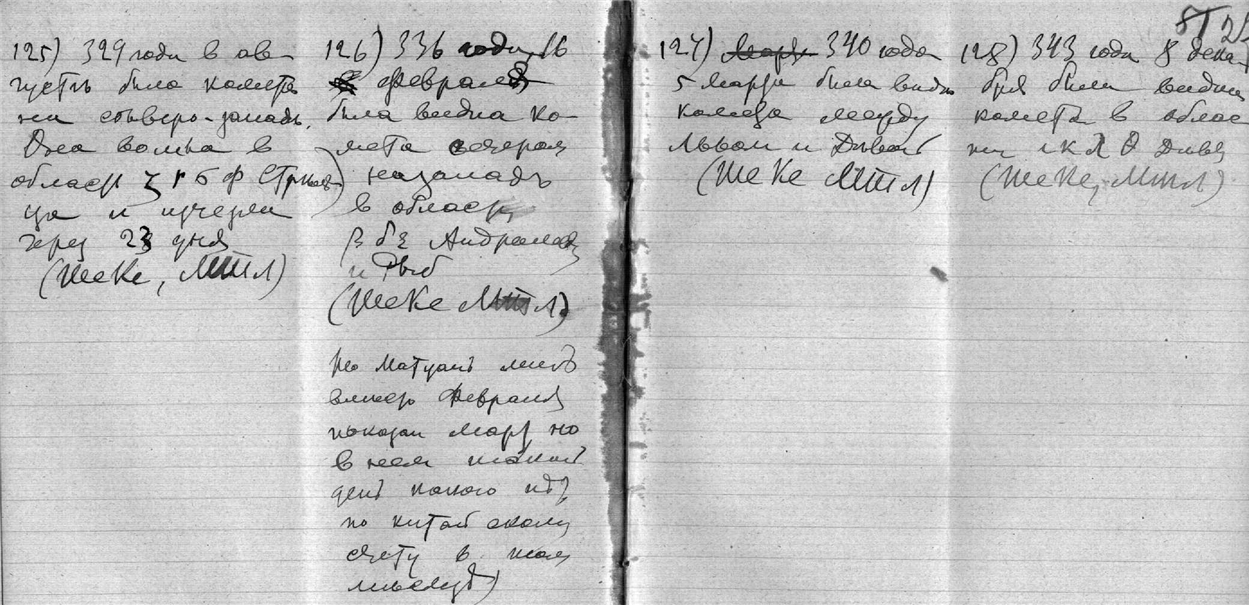 125) 329 года в ав-
густѣ была комета
на сѣверо-западѣ.
Она вошла в
област ζ γ δ φ Стрѣль-
ца и исчезла
через 23 дня
(ШеКе, МТЛ)
126) 336 года 16
Февраля
была видна ко-
мета вечером
на западѣ
в област
β δ ξ Андромеды
и Рыб
(ШеКе МТЛ)
По Матуань лин
вмѣсто Февраля
показан март но
в нем такой
день какого нѣт
по китайскому
счету в том
мѣсяцѣ)
127) Март 340 года
5 Марта была видна
комета между
Львом и Дѣвой
(ШеКе МТЛ)
128) 343 года 8 дека-
бря была видна
комета в облас
ти ικλθ Дѣвы
(ШеКе, МТЛ)